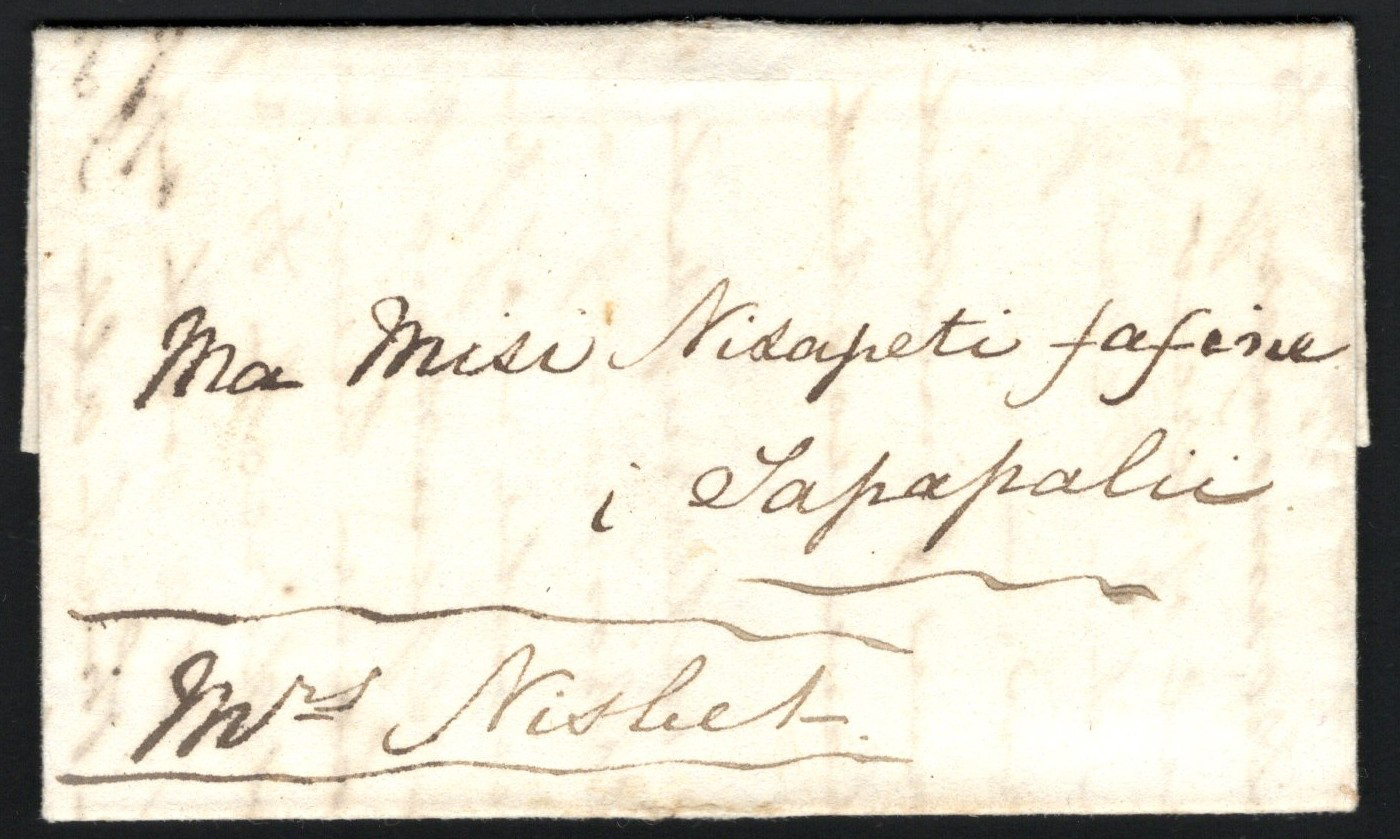 Ma Misi Nisapeti fafine
i Sapapalii
Mrs Nisbet.